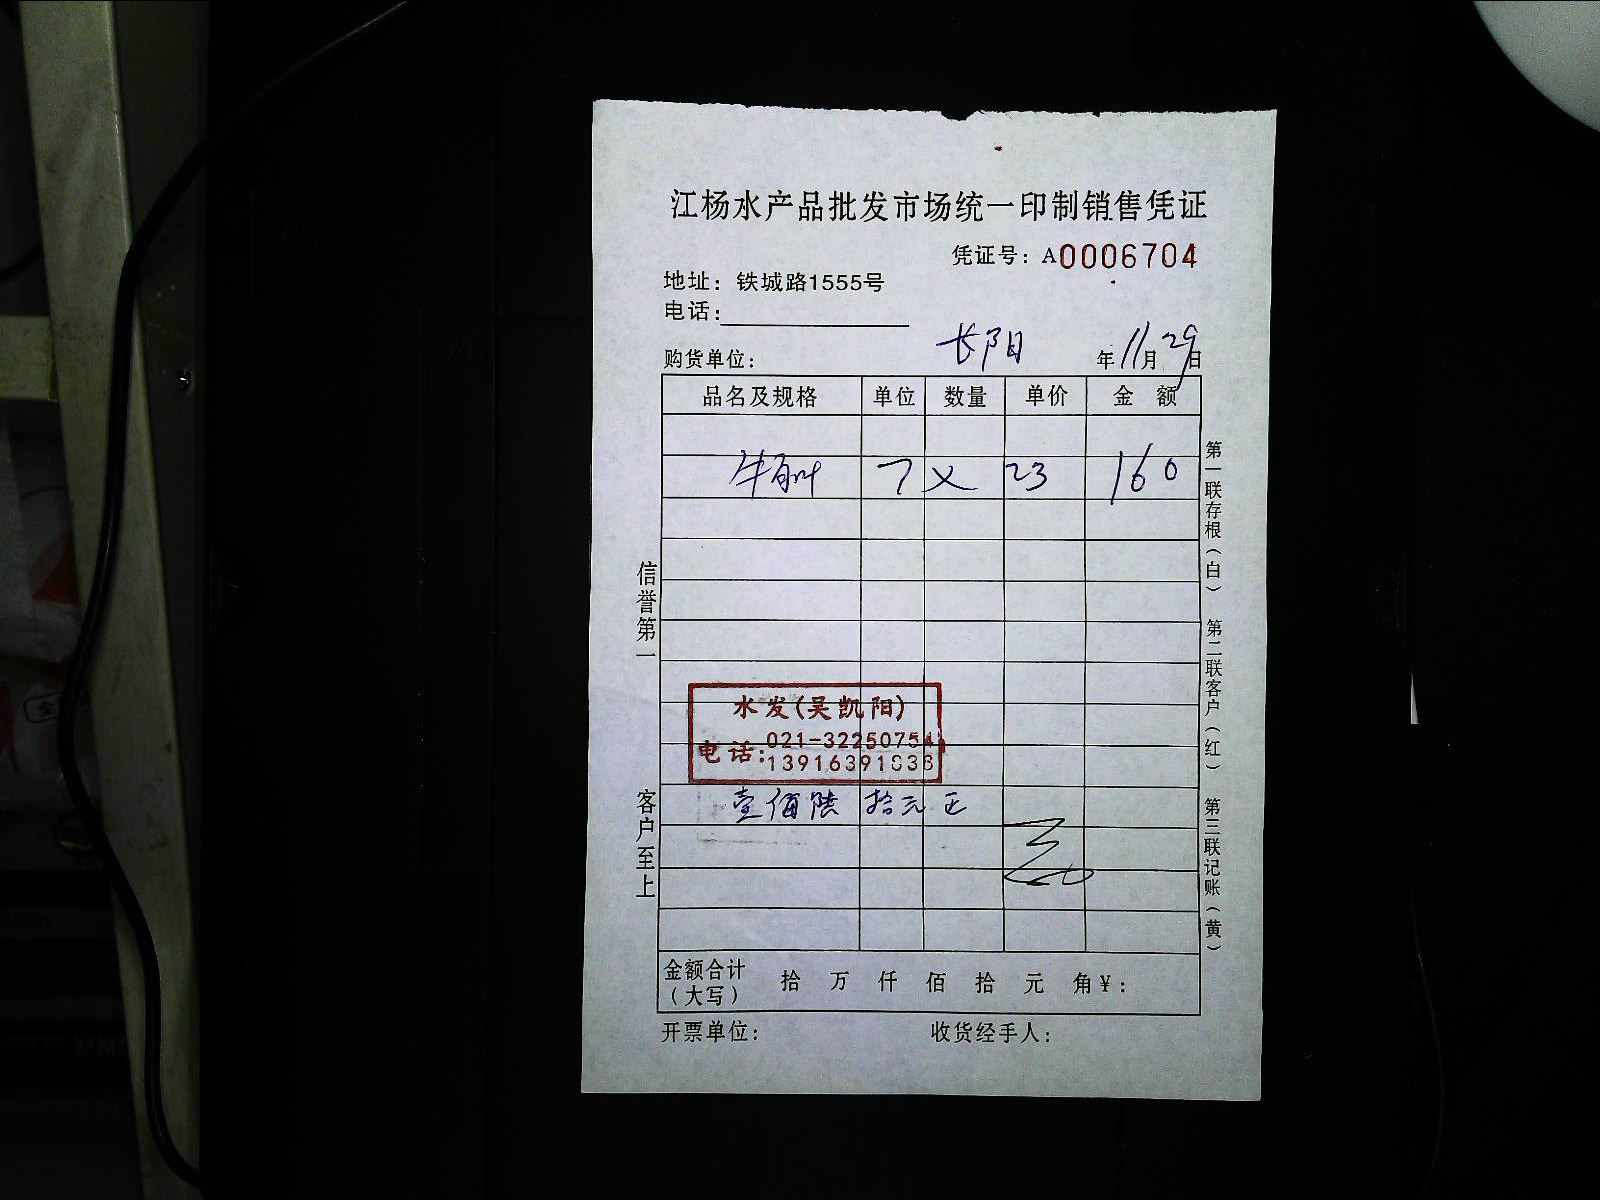 江杨水产品批发市场统一印制销售凭证
凭证号：A0006704
地址：铁城路1555号
电话：
长阳
购货单位： 年11月29日
品名及规格 单位 数量 单价 金 额
牛百叶 7 × 23 160
水发(吴凯阳)
电话：021-32250754
13916391036
壹佰陆拾元正
金额合计（大写） 拾 万 仟 佰 拾 元 角￥：
开票单位： 收货经手人：
信誉第一
客户至上
第一联存根（白）
第二联客户（红）
第三联记账（黄）